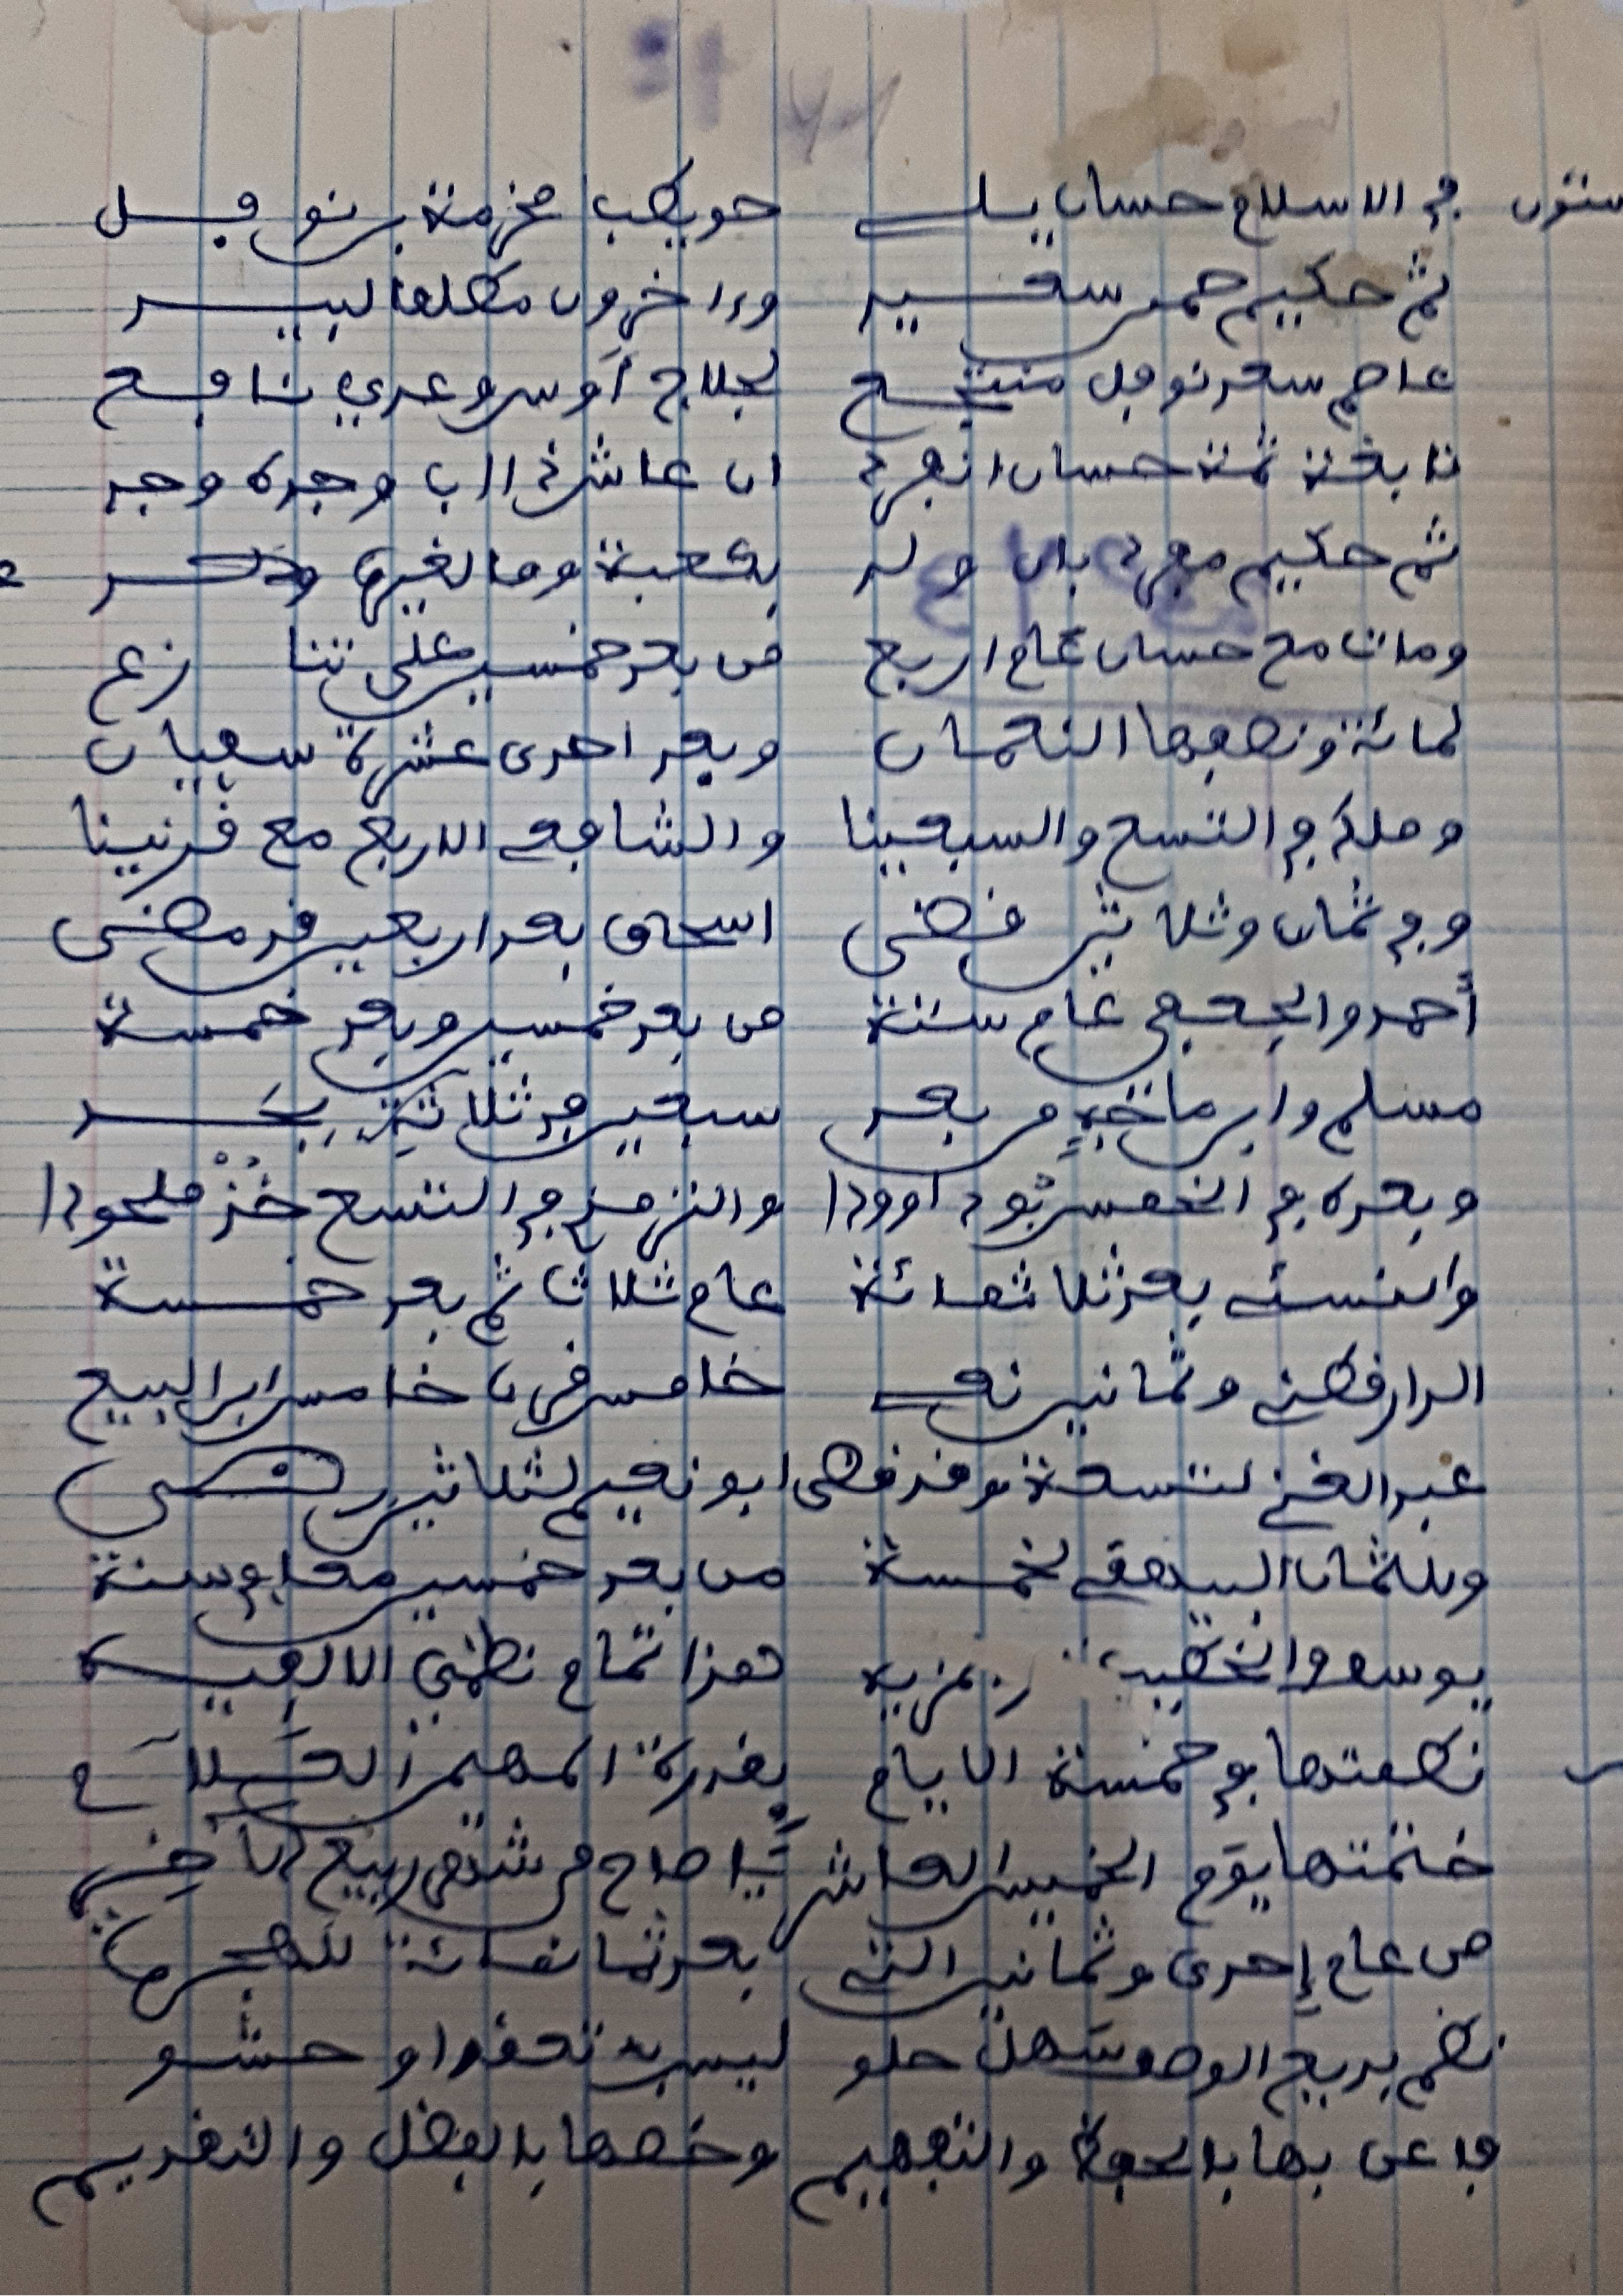 ستون في الاسلام حسان يلي حويطب مخرمة بن نوفل
ثم حكيم حمنن سعيد وءاخرون مطلقا لبيد
عاصم سعد نوفل منتجع لجلاج أوس وعدي نافع
نابغة ثمة حسان انفرد ان عاش ذا اب وجده وجد
ثم حكيم مفرد بان ولد بكعبة وما لغيره
ومات مع حسان عام اربع من بعد خمسين على تنازع
لمائة ونصفها النعمان وبعد احدى عشرة سفيان
وملك في التسع والسبعينا والشافعي الاربع مع قرنينا
وفي ثمان وثلاثين قضى اسحاق بعد اربعين قد مضى
أحمد والجعفي عام ستة من بعد خمسين وبعد خمسة
مسلم وابن ماجه من بعد سبعين في ثلاثة بحد
وبعده في الخمس ثو داوودا والترمذي في التسع خذ ملحودا
والنسئي بعد ثلاثمائة عام ثلاث ثم بعد خمسة
الدارقطني وثمانين نعي خامس قرن خامس ابن البيع
عبد الغني لتسعة وقد قضى ابو نعيم لثلاثين رضى
وللثمان البيهقي لخمسة من بعد خمسين معا في سنة
يوسف والخطيب مزيه هذا تمام نظمي الالفيه
نظمتها في خمسة الايام بقدرة المهيمن العلام
ختمتها يوم الخميس العاشر يا صاح من شهر ربيع الاخر
من عام إحدى وثمانين التي بعد ثمانمائة للهجرة
نظم بديع الوصف سهل حلو ليس به تعقد او حشو
فاعن بها بالحفظ والتفهيم وخصها بالفضل والتقديم